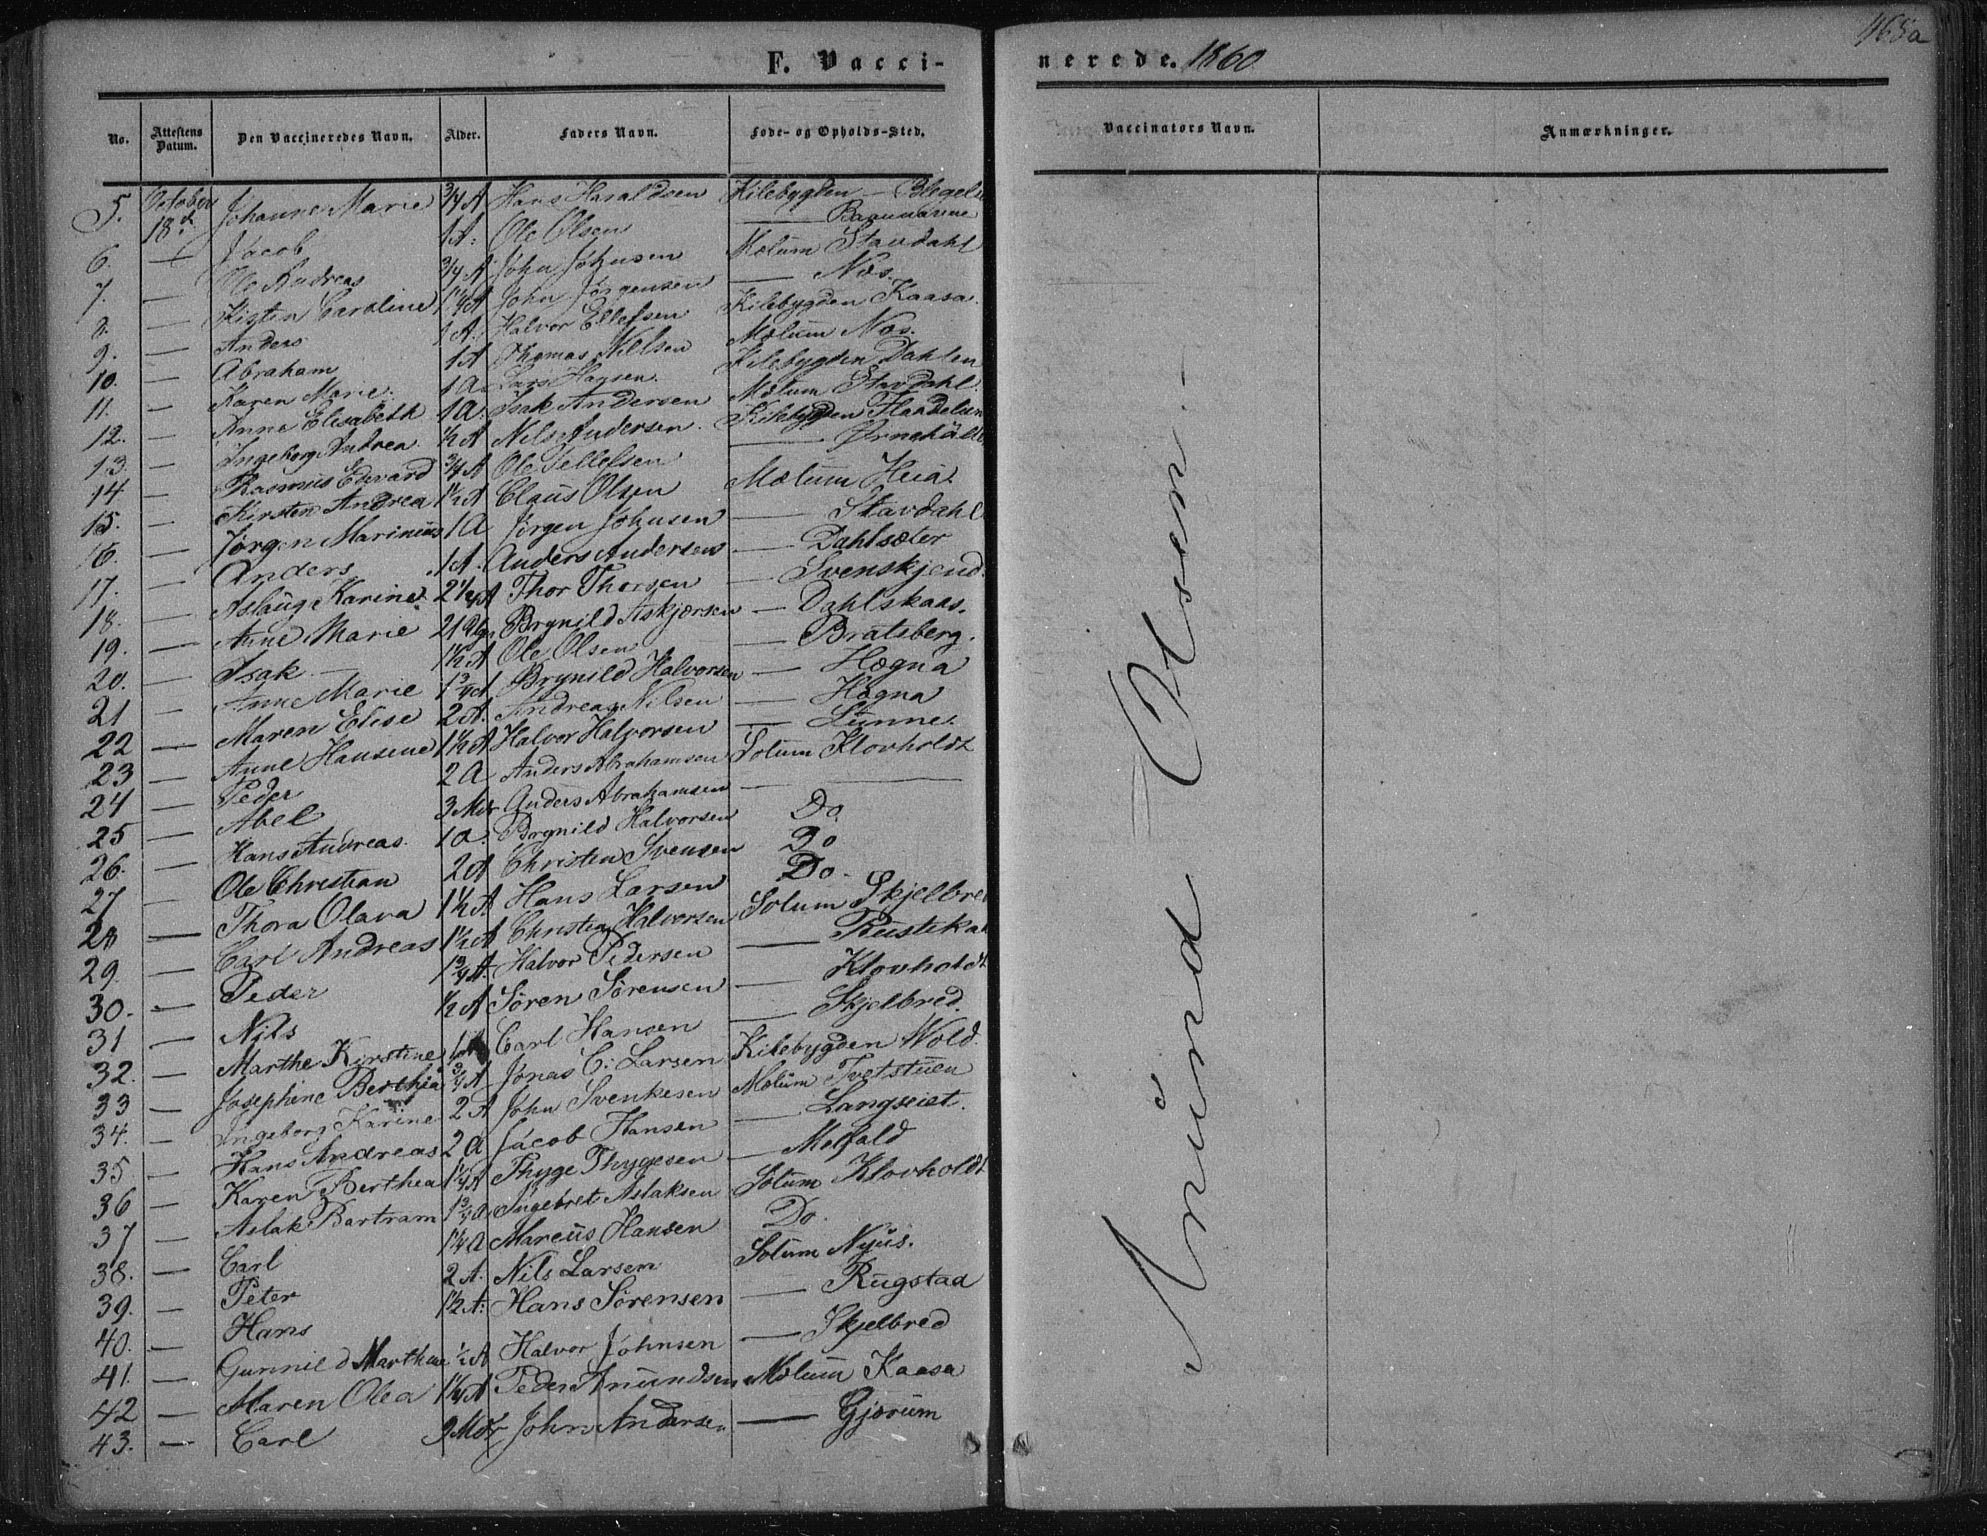 468a
F. Vaccinerede. 1860
No. Attestens Datum. Den Vaccineredes Navn. Alder. Faders Navn. Føde- og Opholds-Sted. Vaccinators Navn. Anmærkninger.
5. October 18d Johanne Marie 3/4 A Hans Haraldsen Kilebygden —
6. — Jacob 1 A. Ole Olsen —
7. — Ole Andreas 3/4 A John Johnsen Mølum Stavdahl
8. — Kisten Caroline 1 1/4 A John Jørgensen — Næs.
9. — Anders 1 A. Halvor Ellefsen Kilebygden Kaasa.
10. — Abraham 1 A Thomas Nilsen Mølum Næs.
11. — Karen Marie. 1 A Lars Hansen. Kilebygden Dahlen
12. — Anne Elisabeth 1 A. Isak Andersen Mølum Stavdahl.
13. — Ingeborg Andrea 1/2 A Nils Andersen. Kilebygden
14 — Rasmus Edevard 3/4 A Ole Tellefsen —
15. — Kirsten Andrea 1 1/2 A Claus Olsen Mælum Heia.
16. — Jørgen Marinius 1 A Jørgen Johnsen — Stavdahl
17. — Anders 1 A. Anders Andersen — Dahlsæter
18. — Aslaug Karine. 2 1/4 A Thor Thorsen — Svenskjend.
19. — Anne Marie 21 Ugr Brynild Askjærsen — Dahlskaas.
20. — Isak — 1 1/2 A Ole Olsen — Bratsberg.
21 — Anne Marie 1 3/4 A Brynild Halvorsen — Hægna
22 — Maren Elise 2 A. Andreas Nilsen — Høgna
23 — Anne Hansine 1 1/2 A Halvor Halvorsen — Lunne.
24 — Peder 2 A Anders Abrahamsen Solum Klovholdt
25 — Abel 3 Mdr Anders Abrahamsen —
26. — Hans Andreas. 1 A. Brynild Halvorsen Do
27 — Ole Christian 2 A Christen Svensen Do
28 — Thora Olava 1 1/2 A Hans Larsen Do.
29. — Carl Andreas 1 1/2 A Christen Halvorsen Solum Skjelbred
30. — Peder 1 3/4 A. Halvor Pedersen —
31 — Nils 1/2 A Søren Sørensen — Klovholdt
32. — Marthe Kirstine Carl Hansen — Skjelbred.
33 — Josephine Berthia 3/4 A Jonas C. Larsen Kilebygden Wold.
34. — Ingeborg Karine 2 A John Svenkesen Mølum Tvetstuen
35 — Hans Andreas 2 A Jacob Hansen — Langseiet.
36 — Karen Berthea 1 1/4 A Thyge Thygesen — Melfald
37 — Aslak Bartram 1 3/4 A Ingebret Aslaksen Solum Klovholdt
38. — Carl 1 1/4 A Marcus Hansen Do.
39. — Peter 2 A. Nils Larsen Solum Nyus.
40. — Hans 1 1/2 A. Hans Sørensen — Rugstad
41. — Gunnild Marthine 1/2 A Halvor Johnsen — Skjelbred
42 — Maren Olea 1 1/4 A Peder Anundsen Mølum Kaasa
43. — Carl 9 Mdr John Andersen — Gjærum
Anund Olsen —